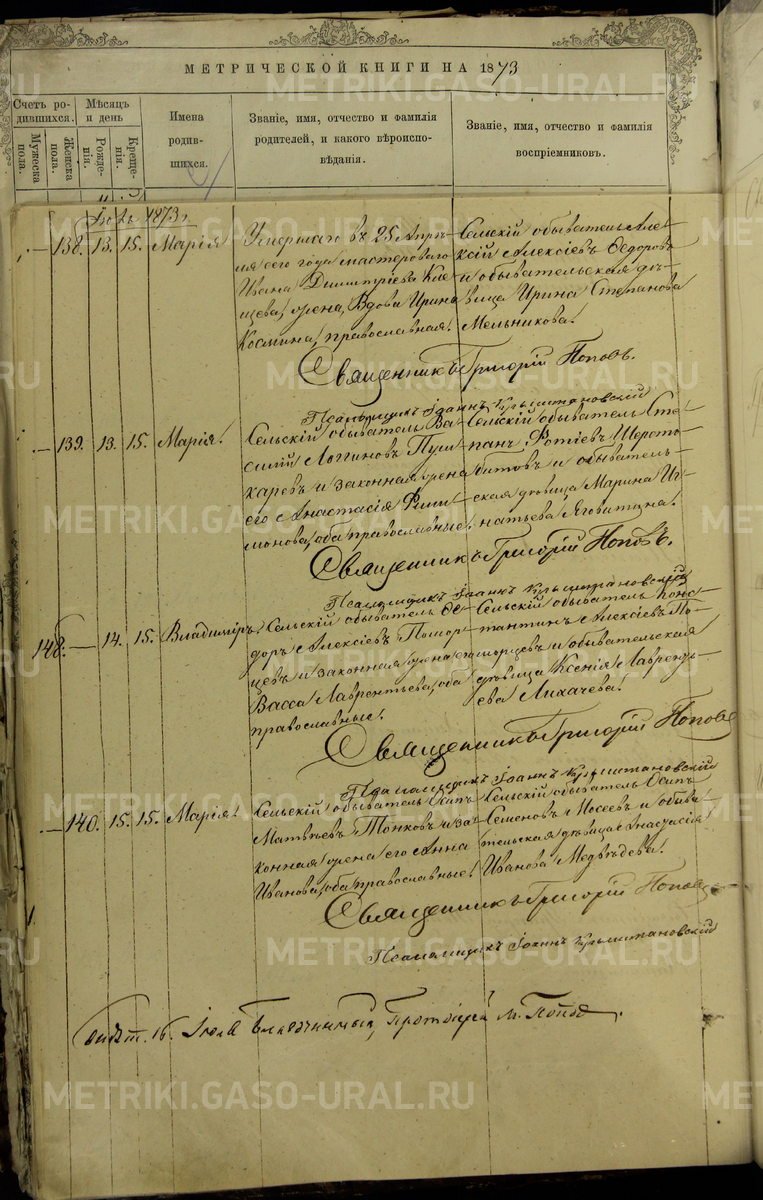 МЕТРИЧЕСКОЙ КНИГИ НА 1873
Счетъ ро-
дившихся.
Мѣсяцъ
и день
Мужеска
пола.
Женска
пола.
Рожде-
нія.
Креще-
нія.
Имена
родив-
шихся.
Званіе, имя, отчество и фамилія
родителей, и какого вѣроиспо-
вѣданія.
Званіе, имя, отчество и фамилія
воспріемниковъ.
1873 г.
— 138. 13. 15. Марія!
Умершаго въ 25 Апрѣ-
ля сего года мастероваго
Ивана Димитріева
жена, Вдова Ирина
Космина, православная!
Сельскій обыватель Але-
ксій Алексіевъ Ѳедоровъ
и обывательская дѣ-
вица Ирина Степанова
Мельникова!
Священникъ Григорій Поповъ.
Псаломщикъ Іоаннъ
— 139. 13. 15. Марія!
Сельскій обыватель Ва-
силій Логгиновъ Пуш-
каревъ и законная жена
его Анастасія Фили-
монова, оба православные!
Сельскій обыватель Сте-
панъ Фотіевъ Шерсто-
битовъ и обыватель-
ская дѣвица Марина Иг-
натьева Яговитина!
Священникъ Григорій Поповъ.
Псаломщикъ Іоаннъ
148. — 14. 15. Владиміръ.
Сельскій обыватель Ѳе-
доръ Алексіевъ Помор-
цевъ и законная жена его
Васса Лаврентьева, оба
православные!
Сельскій обыватель Конс-
тантинъ Алексіевъ По-
морцевъ и обывательская
дѣвица Ксенія Лаврентье-
ева Лихачева!
Священникъ Григорій Поповъ
Псаломщикъ Іоаннъ
— 140. 15. 15. Марія!
Сельскій обыватель Осипъ
Матвѣевъ Тонковъ и за-
конная жена его Анна
Иванова, оба православные!
Сельскій обыватель Осипъ
Семеновъ Мосеевъ и обыва-
тельская дѣвица Анастасія
Иванова Медвѣдева!
Священникъ Григорій Поповъ
Псаломщикъ Іоаннъ
16. Іюля Благочинный, Протоіерей М. Поповъ.
METRIKI.GASO-URAL.RU